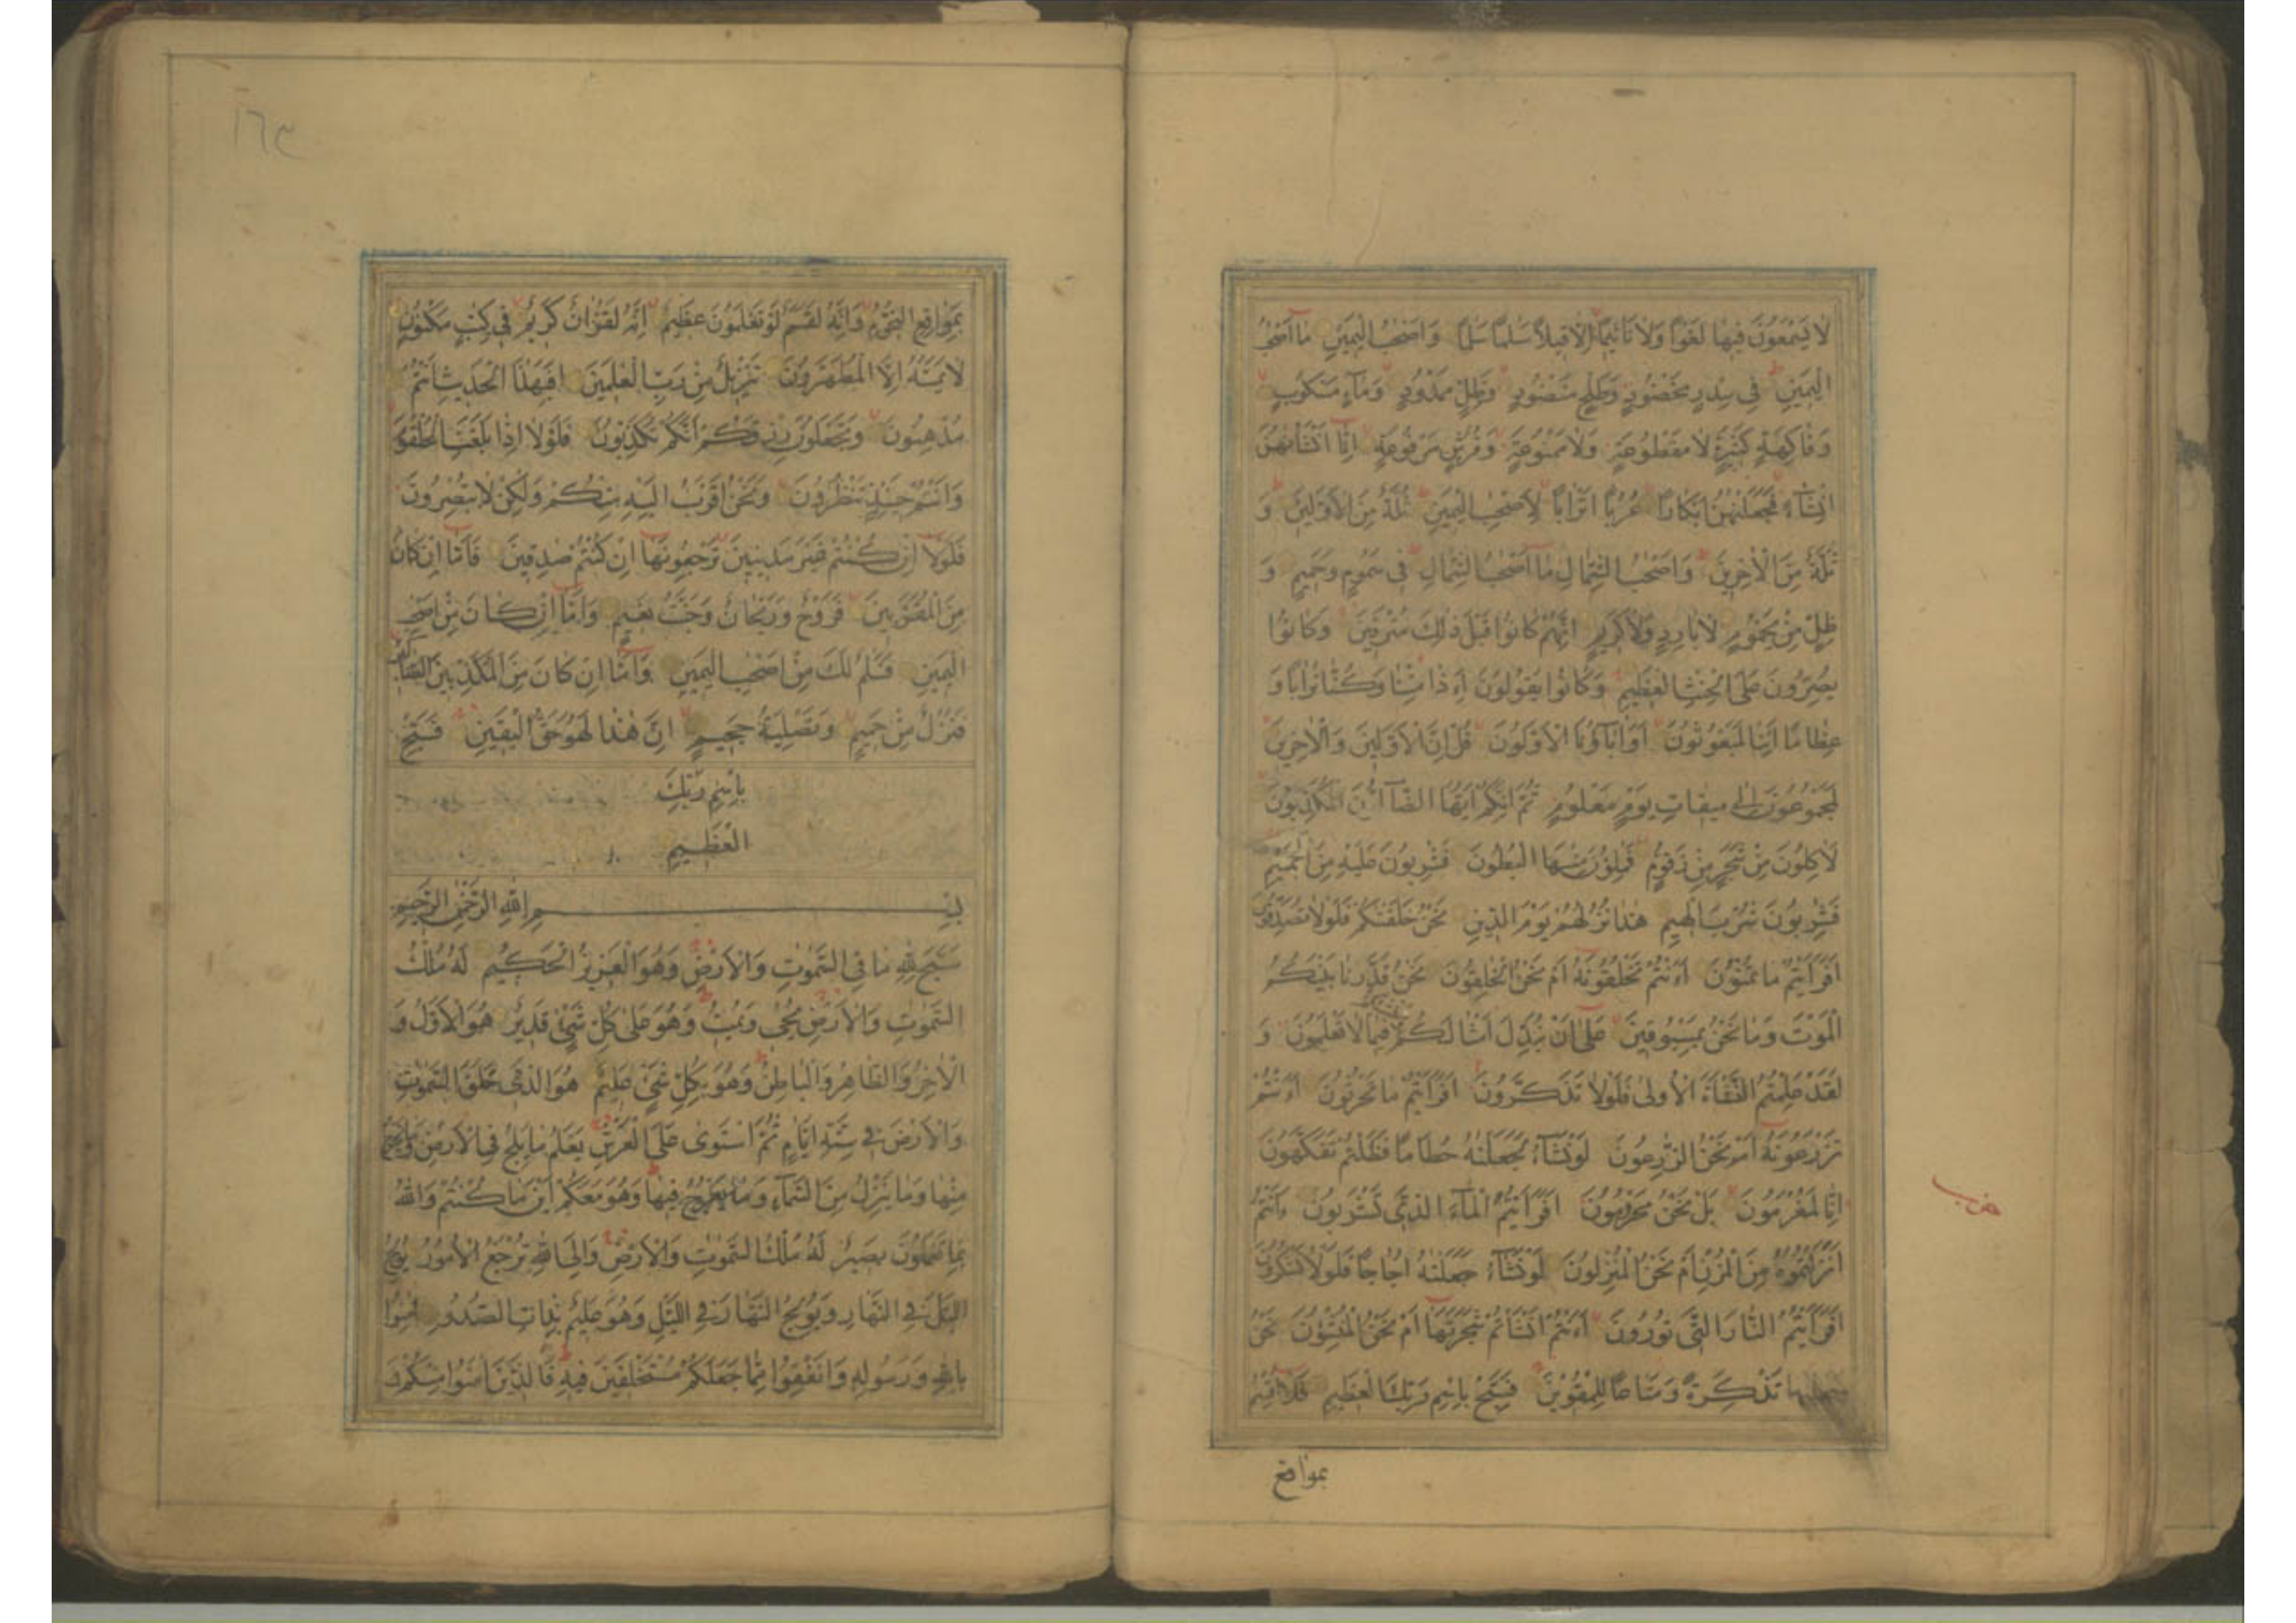 لا يسمعون فيها لغوا ولا تاثيما الا قيلا سلما سلما واصحب اليمين ما اصحب
اليمين في سدر مخضود وطلح منضود وظل ممدود وماء مسكوب
وفاكهة كثيرة لا مقطوعة ولا ممنوعة وفرش مرفوعة انا انشانهن
انشاء فجعلنهن ابكارا عربا اترابا لاصحب اليمين ثلة من الاولين و
ثلة من الاخرين واصحب الشمال ما اصحب الشمال في سموم وحميم و
ظل من يحموم لا بارد ولا كريم انهم كانوا قبل ذلك مترفين وكانوا
يصرون على الحنث العظيم وكانوا يقولون ءاذا متنا وكنا ترابا و
عظاما ائنا لمبعوثون اواباؤنا الاولون قل ان الاولين والاخرين
لمجموعون الى ميقات يوم معلوم ثم انكم ايها الضالون المكذبون
لاكلون من شجر من زقوم فملؤن منها البطون فشربون عليه من الحميم
فشربون شرب الهيم هذا نزلهم يوم الدين نحن خلقنكم فلولا تصدقون
افرايتم ما تمنون ءانتم تخلقونه ام نحن الخلقون نحن قدرنا بينكم
الموت وما نحن بمسبوقين على ان نبدل امثالكم وننشئكم فيما لا تعلمون و
لقد علمتم النشاة الاولى فلولا تذكرون افرايتم ما تحرثون ءانتم
تزرعونه ام نحن الزرعون لو نشاء لجعلنه حطاما فظلتم تفكهون
انا لمغرمون بل نحن محرومون افرايتم الماء الذي تشربون ءانتم
انزلتموه من المزن ام نحن المنزلون لو نشاء جعلنه اجاجا فلولا تشكرون
افرايتم النار التي تورون ءانتم انشاتم شجرتها ام نحن المنشؤن نحن
جعلنها تذكرة ومتاعا للمقوين فسبح باسم ربك العظيم فلا اقسم
بمواقع
١٦٣
بمواقع النجوم وانه لقسم لو تعلمون عظيم انه لقران كريم في كتب مكنون
لا يمسه الا المطهرون تنزيل من رب العلمين افبهذا الحديث انتم
مدهنون وتجعلون رزقكم انكم تكذبون فلولا اذا بلغت الحلقوم
وانتم حينئذ تنظرون ونحن اقرب اليه منكم ولكن لا تبصرون
فلولا ان كنتم غير مدينين ترجعونها ان كنتم صدقين فاما ان كان
من المقربين فروح وريحان وجنت نعيم واما ان كان من اصحب
اليمين فسلم لك من اصحب اليمين واما ان كان من المكذبين الضالين
فنزل من حميم وتصلية جحيم ان هذا لهو حق اليقين فسبح
باسم ربك
العظيم
بسم الله الرحمن الرحيم
سبح لله ما في السموت والارض وهو العزيز الحكيم له ملك
السموت والارض يحيي ويميت وهو على كل شيء قدير هو الاول و
الاخر والظاهر والباطن وهو بكل شيء عليم هو الذي خلق السموت
والارض في ستة ايام ثم استوى على العرش يعلم ما يلج في الارض وما يخرج
منها وما ينزل من السماء وما يعرج فيها وهو معكم اين ما كنتم والله
بما تعملون بصير له ملك السموت والارض والى الله ترجع الامور يولج
اليل في النهار ويولج النهار في الليل وهو عليم بذات الصدور امنوا
بالله ورسوله وانفقوا مما جعلكم مستخلفين فيه فالذين امنوا منكم و